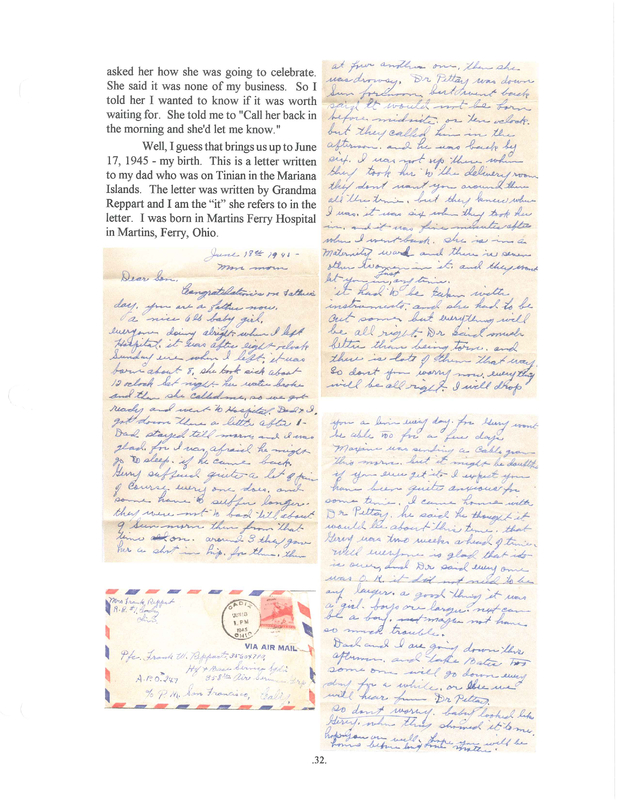 asked her how she was going to celebrate.
She said it was none of my business. So I
told her I wanted to know if it was worth
waiting for. She told me to "Call her back in
the morning and she'd let me know."
Well, I guess that brings us up to June
17, 1945 - my birth. This is a letter written
to my dad who was on Tinian in the Mariana
Islands. The letter was written by Grandma
Reppart and I am the "it" she refers to in the
letter. I was born in Martins Ferry Hospital
in Martins, Ferry, Ohio.
June 18th 1945 -
Mon morn
Dear Son.
Congratulations on Father's
day, you are a father now,
a nice 6lb baby girl,
everyone doing alright when I left
Hospital, it was after eight oclock
Sunday eve when I left, it was
born about 8, she took sick about
12 oclock Sat night her water broke
and then she called me, so we got
ready and went to Hospital, Dad & I
got down there a little after 1-
Dad stayed till morn and I was
glad, for I was afraid he might
go to sleep, if he came back,
Gerry suffered quite a lot of pain
of course every one does, and
some have to suffer longer.
they were not to bad till about
9 Sun morn then from that
time on. around 3 they gave
her a shot in hip, for them, then
at four another one, then she
was drowsy. Dr Pettay was down
Sun forenoon but went back
said it would not be born
before midnite, or ten oclock,
but they called him in the
afternoon, and he was back by
six. I was not up there when
they took her to the delivery room
they don't want you around there
all the time, but they knew where
I was, it was six when they took her
in, and it was five minutes after
when I went back. She is in a
Maternity ward and there is seven
other women in it, and they wont
let you in, just any time.
it had to be taken with
instruments, and she had to be
cut some, but everything will
be all right, Dr said much
better than being torn, and
there is lots of them that way.
So don't you worry now, everything
will be all right. I will drop
you a line every day, for Gerry wont
be able too for a few days
Maxine was sending a Cablegram
this morn, but it might be doubtful
if you ever get it. I expect you
have been quite anxious for
some time, I came home with
Dr Pettay, he said he thought it
would be about this time, that
Gerry was two weeks ahead of time.
Well everyone is glad that it
is over, and Dr said every one
was O.K. it did not need to be
any larger, a good thing it was
a girl, boys are larger, next can
be a boy, and maybe not have
so much trouble.
Dad and I are going down this
afternoon, and take Kates too
some one will go down every
day for a while, or else we
will hear from Dr Pettay.
so don't worry, baby looked like
Gerry, when they showed it to me.
hope you are well, hope you will be
home before long Mother
Mrs Frank Reppart
R.D. #1, Cadiz
Ohio
CADIZ
JUN 18
1 PM
1945
OHIO
VIA AIR MAIL
Pfc. Frank W. Reppart
A.P.O. 247
358th Air Service Grp
c/o P.M. San Francisco, Calif.
.32.